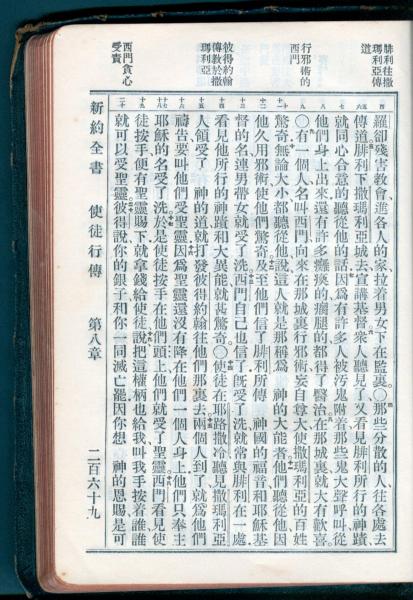 腓利往撒
瑪利亞傳
道
行邪術的
西門
彼得約翰
傳教於撒
瑪利亞
西門貪心
受責
羅卻殘害教會進各人的家拉着男女下在監裏○那些分散的人往各處去
傳道腓利下撒瑪利亞城去宣講基督衆人聽見了又看見腓利所行的神蹟
就同心合意的聽從他的話因爲有許多人被污鬼附着那些鬼大聲呼叫從
他們身上出來還有許多癱瘓的瘸腿的都得了醫治在那城裏就大有歡喜
○有一個人名叫西門向來在那城裏行邪術妄自尊大使撒瑪利亞的百姓
驚奇無論大小都聽從他說這人就是那稱爲 神的大能者他們聽從他因
他久用邪術使他們驚奇及至他們信了腓利所傳 神國的福音和耶穌基
督的名連男帶女就受了洗西門自己也信了旣受了洗就常與腓利在一處
看見他所行的神蹟和大異能就甚驚奇○使徒在耶路撒冷聽見撒瑪利亞
人領受了 神的道就打發彼得約翰往他們那裏去兩個人到了就爲他們
禱告要叫他們受聖靈因爲聖靈還沒有降在他們一個人身上他們只奉主
耶穌的名受了洗於是使徒按手在他們頭上他們就受了聖靈西門看見使
徒按手便有聖靈賜下就拿錢給使徒說把這權柄也給我叫我手按着誰誰
就可以受聖靈彼得說你的銀子和你一同滅亡罷因你想 神的恩賜是可
新約全書 使徒行傳 第八章 二百六十九